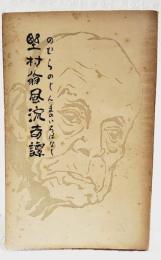 のむらのじんまのいろばなし
埜村翁風流奇譚